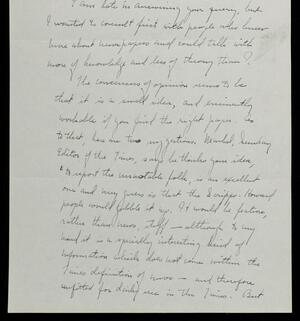 I am late in answering your query, but
I wanted to consult first with people who knew
more about newspapers and could talk with
more of knowledge and less of
The consensus of opinion seems to be
that it is a swell idea, and eminently
workable if you find the right paper. As
to that, here are two suggestions. Sunday
Editor of the Times, says he thanks your idea,
to report the unnotable folk, is an excellent
one and my guess is that the Scripps-Howard
people would gobble it up. It would be feature,
rather than news, stuff — although to my
mind it is a specially interesting kind of
information which does not come within the
Times definition of news — and therefore
unfitted for daily use in the Times. But